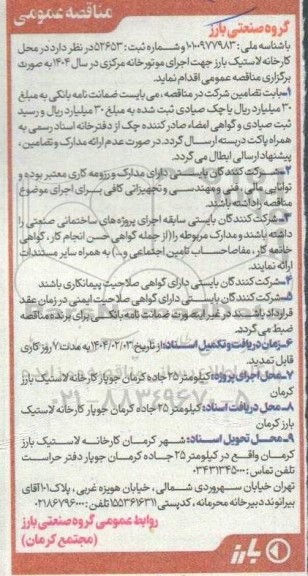 مناقصه عمومی
گروه صنعتی بارز
باشناسه ملی: ۱۰۱۰۰۹۷۷۹۸۳ و شماره ثبت: ۵۲۶۵۳ در نظر دارد در محل
کارخانه لاستیک بارز جهت اجرای موتورخانه مرکزی در سال ۱۴۰۴ به صورت
برگزاری مناقصه عمومی اقدام نماید.
۱-بابت تضامین شرکت در مناقصه، می بایست ضمانت نامه بانکی به مبلغ
۳۰ میلیارد ریال یا چک صیادی ثبت شده به مبلغ ۳۰ میلیارد ریال و رسید
ثبت صیادی و گواهی امضاء صادر کننده چک از دفترخانه اسناد رسمی به
همراه پاکت دربسته ارسال گردد. در صورت عدم ارائه مدارک و تضامین،
پیشنهاد ارسالی ابطال می گردد.
۲-شرکت کنندگان بایستی دارای مدارک و رزومه کاری معتبر بوده و
توانایی مالی، فنی و مهندسی و تجهیزاتی کافی برای اجرای موضوع
مناقصه را داشته باشند.
۳-شرکت کنندگان بایستی سابقه اجرای پروژه های ساختمانی صنعتی را
داشته باشند و مدارک مربوطه را (از جمله گواهی حسن انجام کار، گواهی
خاتمه کار، مفاصاحساب تامین اجتماعی و..) به همراه سایر مستندات
ارائه نمایند.
۴-شرکت کنندگان بایستی دارای گواهی صلاحیت پیمانکاری باشند
۵-شرکت کنندگان بایستی دارای گواهی صلاحیت ایمنی در زمان عقد
قرارداد باشند در غیر اینصورت ضمانت نامه بانکی برای برنده مناقصه
ضبط می گردد.
۶-زمان دریافت و تکمیل اسناد: از تاریخ ۱۴۰۴/۰۲/۰۳ به مدت ۷ روز کاری
قابل تمدید.
۷-محل اجرای پروژه: کیلومتر ۲۵ جاده کرمان جوپار کارخانه لاستیک بارز
کرمان
۸-محل دریافت اسناد: کیلومتر ۲۵ جاده کرمان جوپار کارخانه لاستیک
بارز کرمان
۹-محل تحویل اسناد: شهر کرمان کارخانه لاستیک بارز
کرمان واقع در کیلومتر ۲۵ جاده کرمان جوپار دفتر حراست
تلفن تماس: ۰۳۴۳۱۳۴۵۰۰۰
تهران خیابان سهروردی شمالی، خیابان هویزه غربی، پلاک ۱۰۱ آقای
بیرانوند دبیرخانه محرمانه، کدپستی ۱۵۵۳۶۱۶۳۱۱ تلفن: ۰۲۱۸۶۷۹۶۰۰۰
روابط عمومی گروه صنعتی بارز
(مجتمع کرمان)
بارز
۰۲۱-۸۸۳۴۹۶۷۰-۵